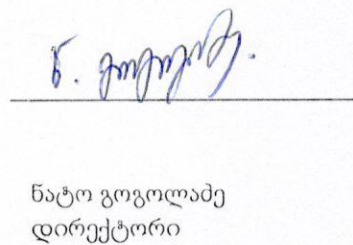 ნ. გოგოლაძე.
ნატო გოგოლაძე
დირექტორი